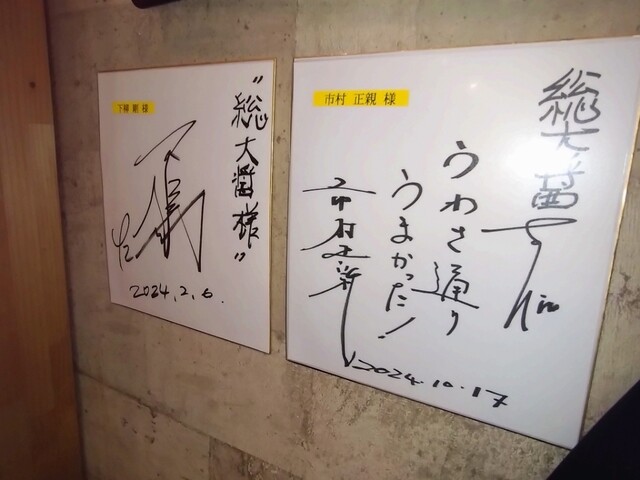 下柳 剛 様
"総大醤様"
2024.2.6.
市村 正親 様
総大醤
うわさ通り
うまかった!
市村正親
2024.10.17